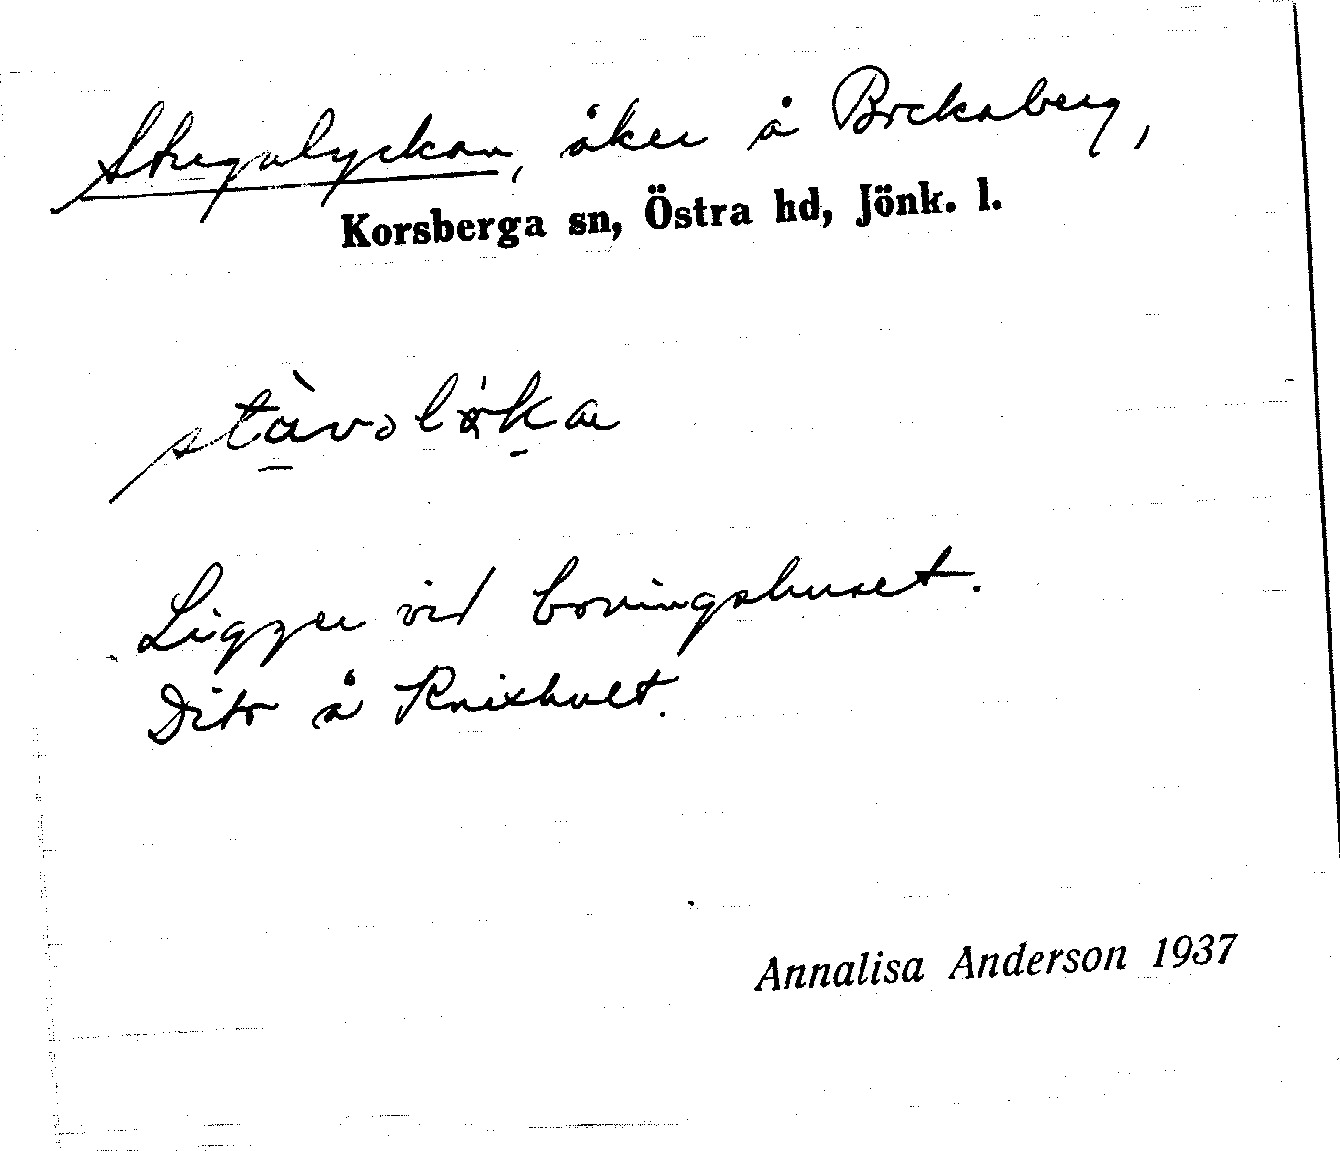 Stugulyckan, åker å Bockaberg,
Korsberga sn, Östra hd, Jönk. l.
Ligger vid boningshuset.
Dito å Knixhult.
Annalisa Anderson 1937